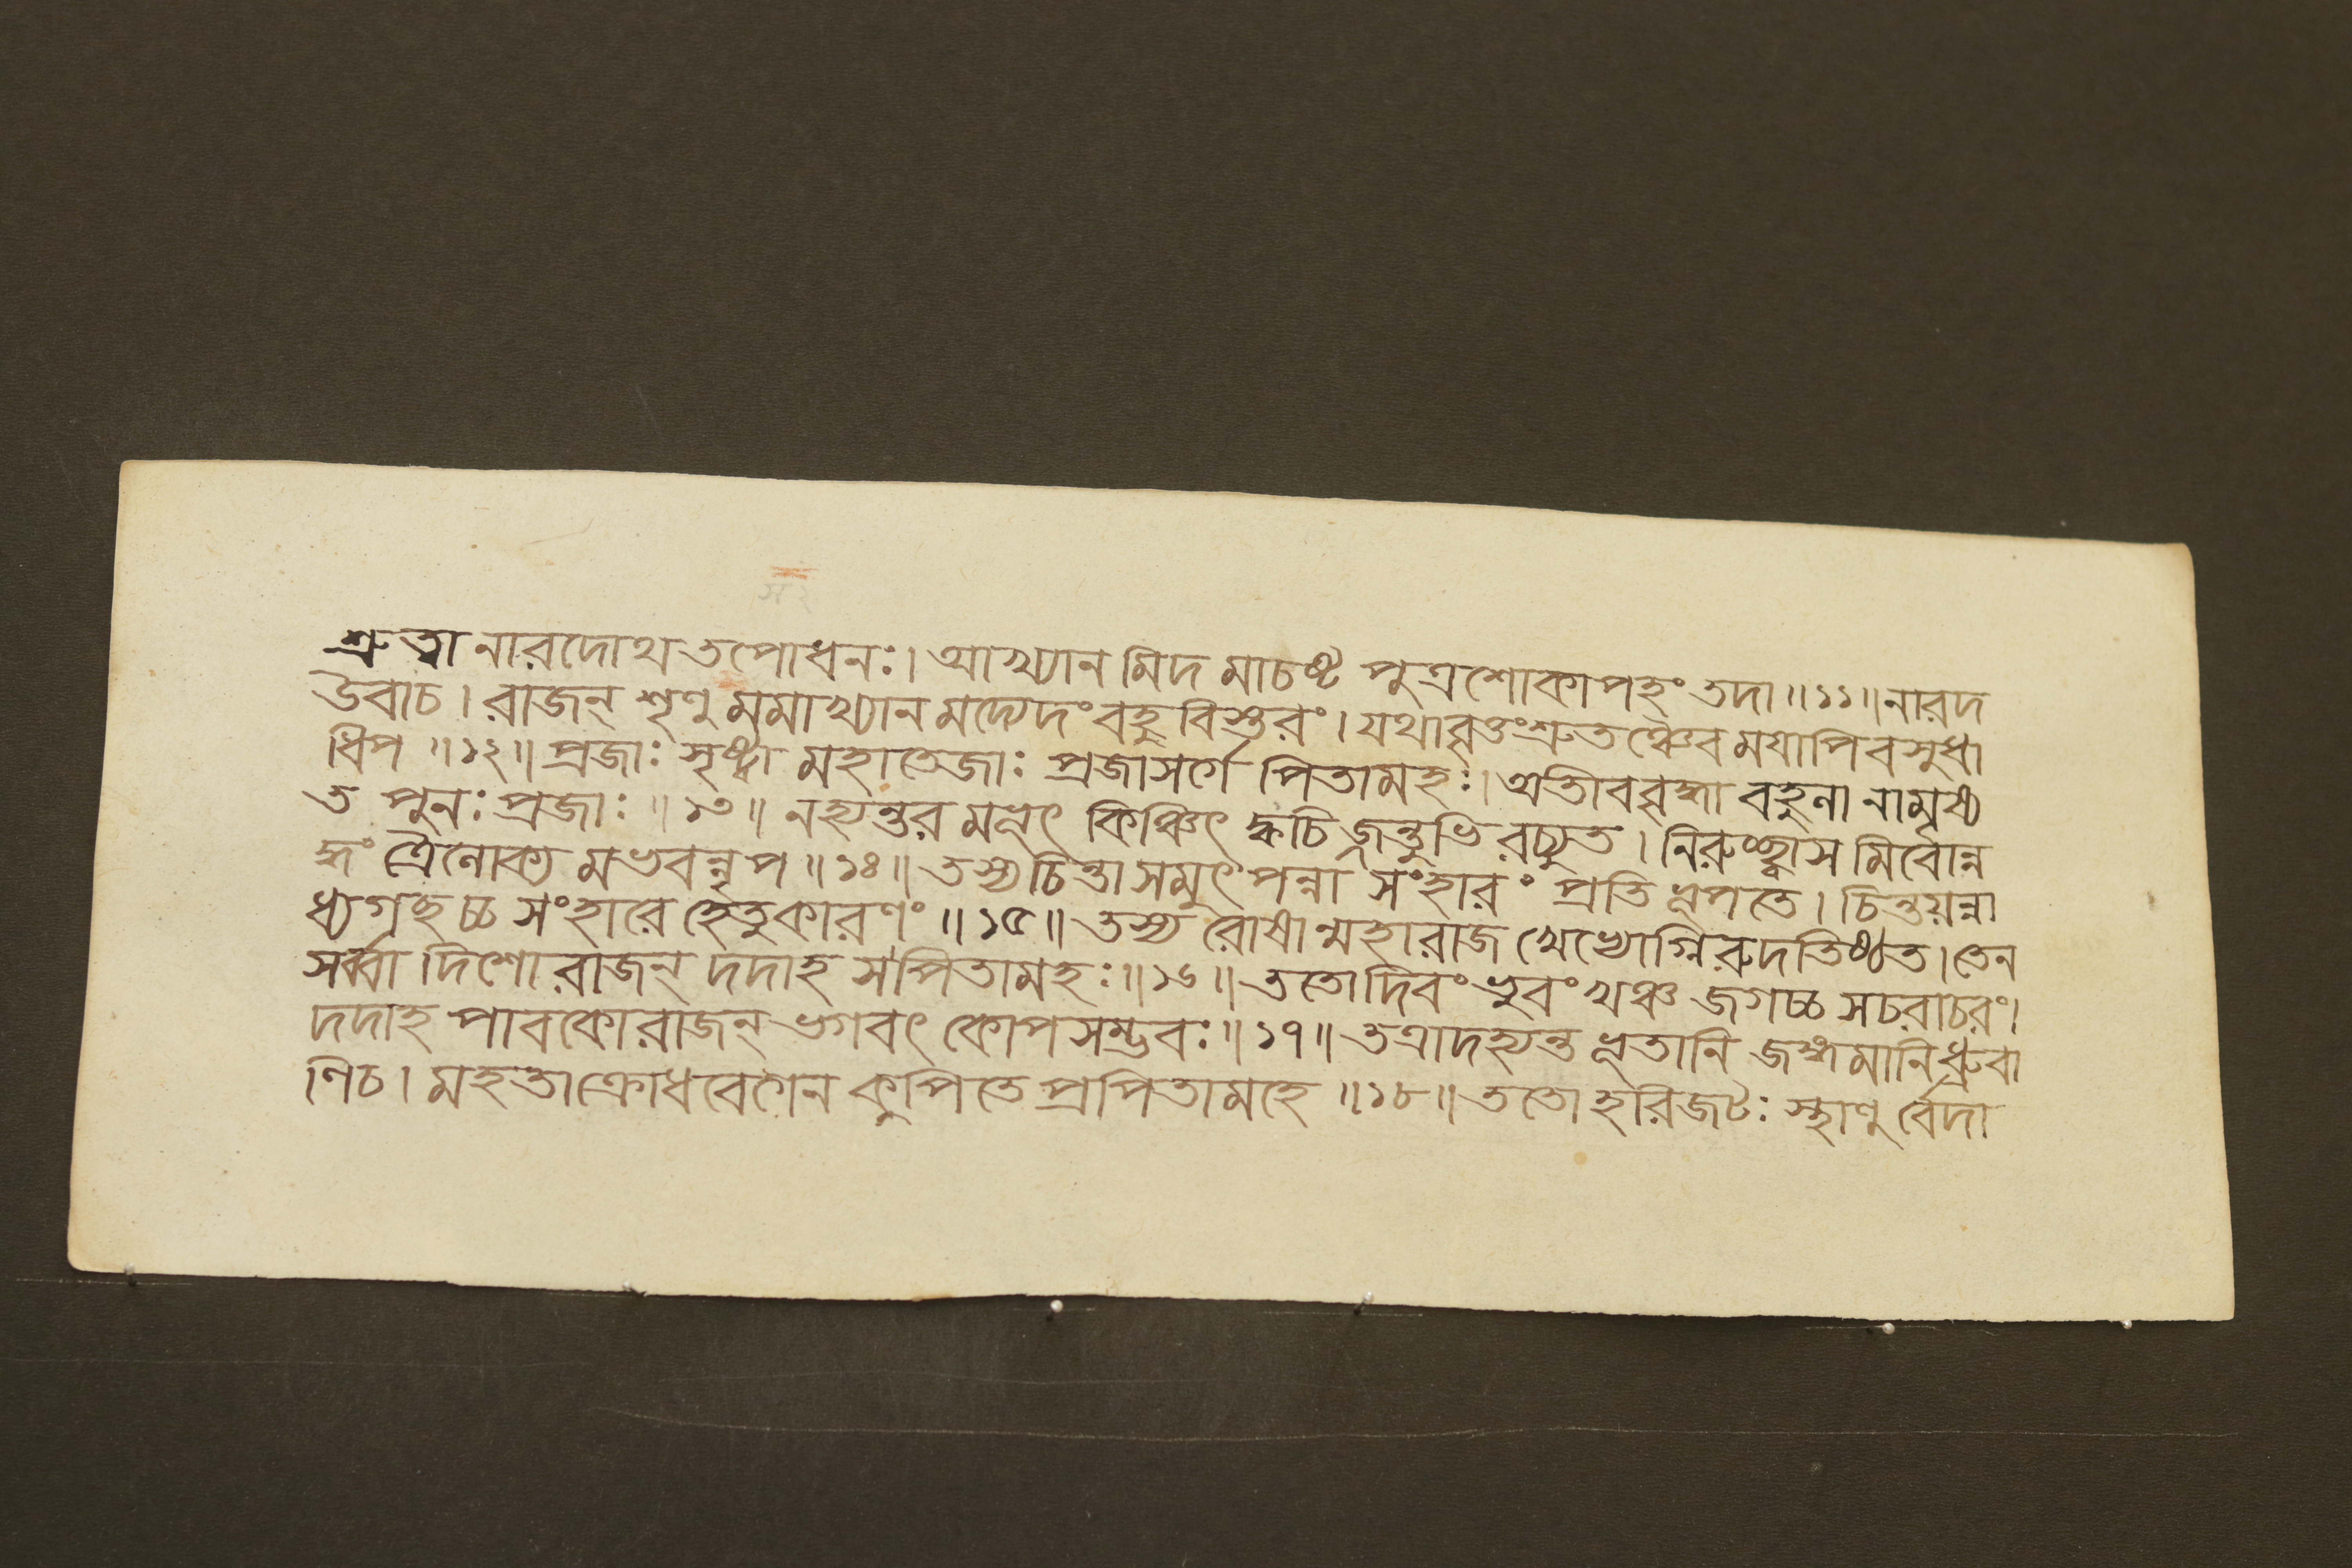 শ্রুত্বা নারদোথ তপোধনঃ। আখ্যান মিদ মাচষ্ট পুত্রশোকাপহং তদা॥১১॥নারদ
উবাচ। রাজন্ শৃণু মমাখ্যান মদ্যেদং বহু বিস্তরং। যথাবৃত্তংশ্রুতঞ্চৈব ময়াপি বসুধা
ধিপ॥১২॥ প্রজাঃ সৃষ্ট্বা মহাতেজাঃ প্রজাসর্গে পিতামহঃ। অতীববৃদ্ধা বহুলা নামৃষ্য
ত পুনঃ প্রজাঃ॥১৩॥ নহ্যন্তর মভূৎ কিঞ্চিৎ ক্বচি জ্জন্তুভি রচ্যুত। নিরুচ্ছ্বাস মিবোন্ন
দ্ধং ত্রৈলোক্য মভবন্নৃপ॥১৪॥ তস্যচিন্তা সমুৎপন্না সংহারং প্রতি ভূপতে। চিন্তয়ন্না
ধ্যগচ্ছচ্চ সংহারে হেতুকারণং॥১৫॥ তস্য রোষান্মহারাজ খেভ্যোগ্নিরুদতিষ্ঠত। তেন
সর্ব্বা দিশো রাজন্ দদাহ সপিতামহঃ॥১৬॥ ততো দিবং ভুবং খঞ্চ জগচ্চ সচরাচরং।
দদাহ পাবকো রাজন্ ভগবৎ কোপসম্ভবঃ॥১৭॥ তত্রাদহ্যন্ত ভূতানি জঙ্গমানি ধ্রুবা
ণিচ। মহতা ক্রোধবেগেন কুপিতে প্রপিতামহে॥১৮॥ ততো হরিজটঃ স্থাণু র্বেদা